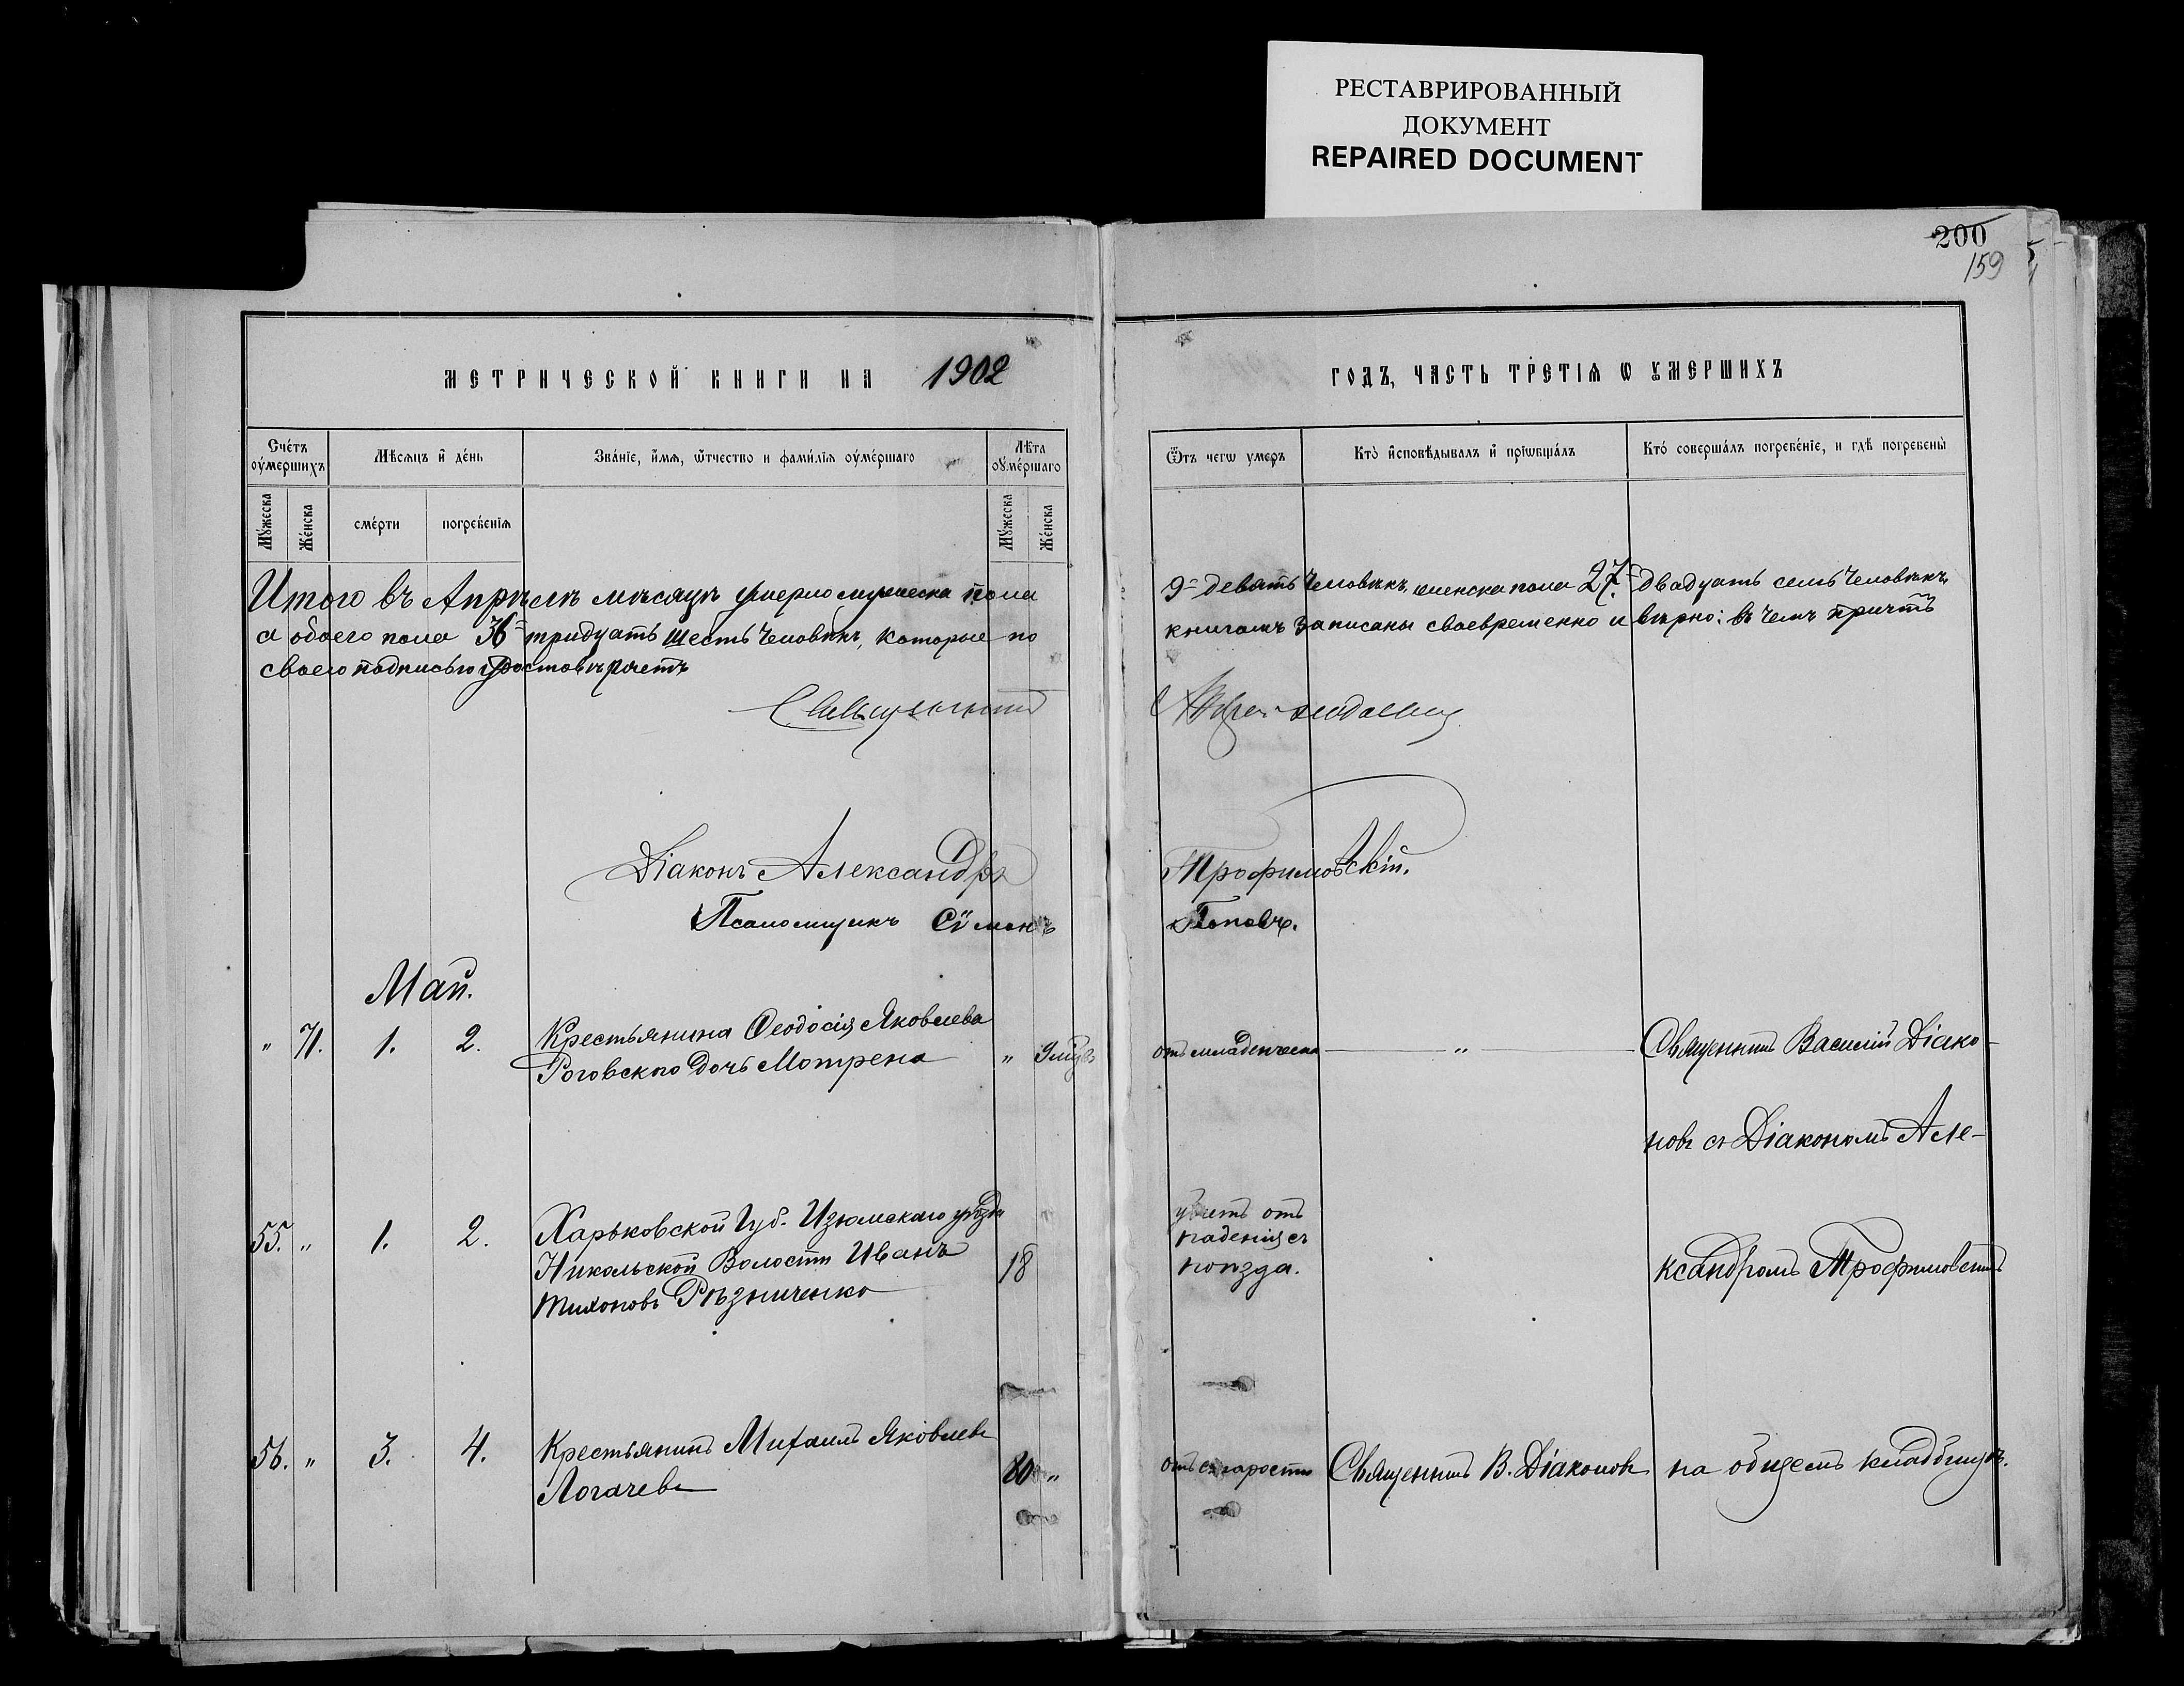 РЕСТАВРИРОВАННЫЙ
ДОКУМЕНТ
REPAIRED DOCUMENT
200
159
МЕТРИЧЕСКОЙ КНИГИ НА 1902
ГОДЪ, ЧАСТЬ ТРЕТІЯ Ѡ УМЕРШИХЪ
Счетъ оумершихъ
Мѣсяцъ и день
Званіе, имя, ѿтчество и фамилія оумершаго
Лѣта оумершаго
Мужеска
Женска
смерти
погребенія
Мужеска
Женска
Ѿтъ чегѡ умеръ
Кто исповѣдывалъ и пріѡбщалъ
Кто совершалъ погребеніе, и гдѣ погребены
Итого въ Апрѣлѣ мѣсяцѣ умерло мужеска пола 9 девять человѣкъ, женска пола 27. двадцать семь человѣкъ,
а обоего пола 36 тридцать шесть человѣкъ, которые по книгамъ записаны своевременно и вѣрно: въ чемъ причтъ
своею подписью удостовѣряетъ
Священникъ
Діаконъ Александръ Трофимовскій.
Псаломщикъ Сѵмонъ Поповъ.
Май.
" 71. 1. 2. Крестьянина Ѳеодосія Яковлева
Роговского дочь Мотрена " 9 мѣс. отъ младенческа " Священникъ Василій Діако-
новъ съ Діакономъ Але-
55. " 1. 2. Харьковской Губ. Изюмскаго уѣзда
Никольской Волости Иванъ
Тихоновъ Рѣзниченко 18
убитъ отъ
паденія съ
поѣзда.
ксандромъ Трофимовскимъ
56. " 3. 4. Крестьянинъ Михаилъ Яковлевъ
Логачевъ 80 " отъ старости Священникъ В. Діаконовъ на общемъ кладбищѣ.